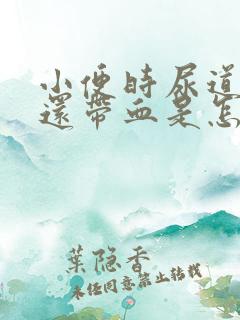 小便時尿道
還帶血是怎
葉隐香
未经同意禁止转载